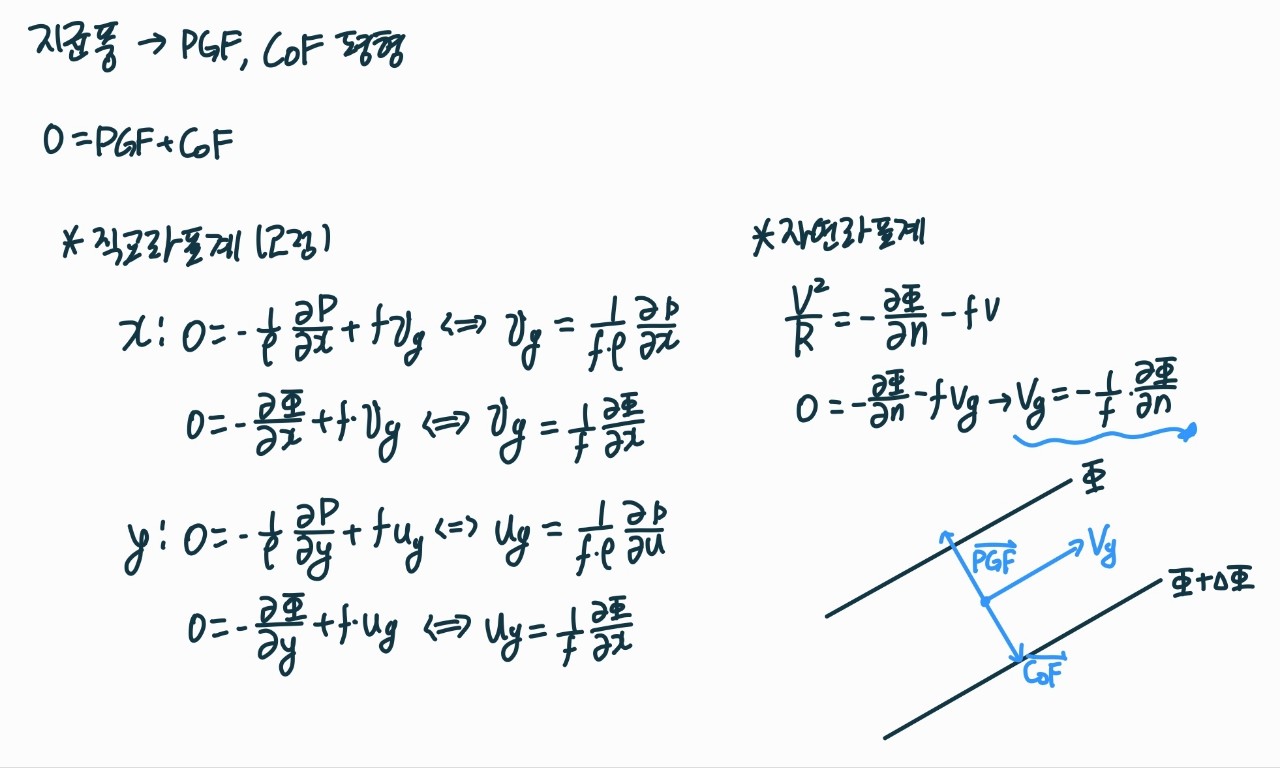 지균풍 → PGF, CoF 평형
0 = PGF + CoF
* 직교좌표계 (고정)
x: 0 = - 1/ρ ∂P/∂x + fv_g ⇔ v_g = 1/(f·ρ) ∂p/∂x
0 = - ∂Φ/∂x + f·v_g ⇔ v_g = 1/f ∂Φ/∂x
y: 0 = - 1/ρ ∂P/∂y + fu_g ⇔ u_g = 1/(f·ρ) ∂p/∂u
0 = - ∂Φ/∂y + f·u_g ⇔ u_g = 1/f ∂Φ/∂x
* 자연좌표계
V²/R = - ∂Φ/∂n - fV
0 = - ∂Φ/∂n - fV_g → V_g = - 1/f · ∂Φ/∂n
Φ
PGF
V_g
Φ+ΔΦ
CoF